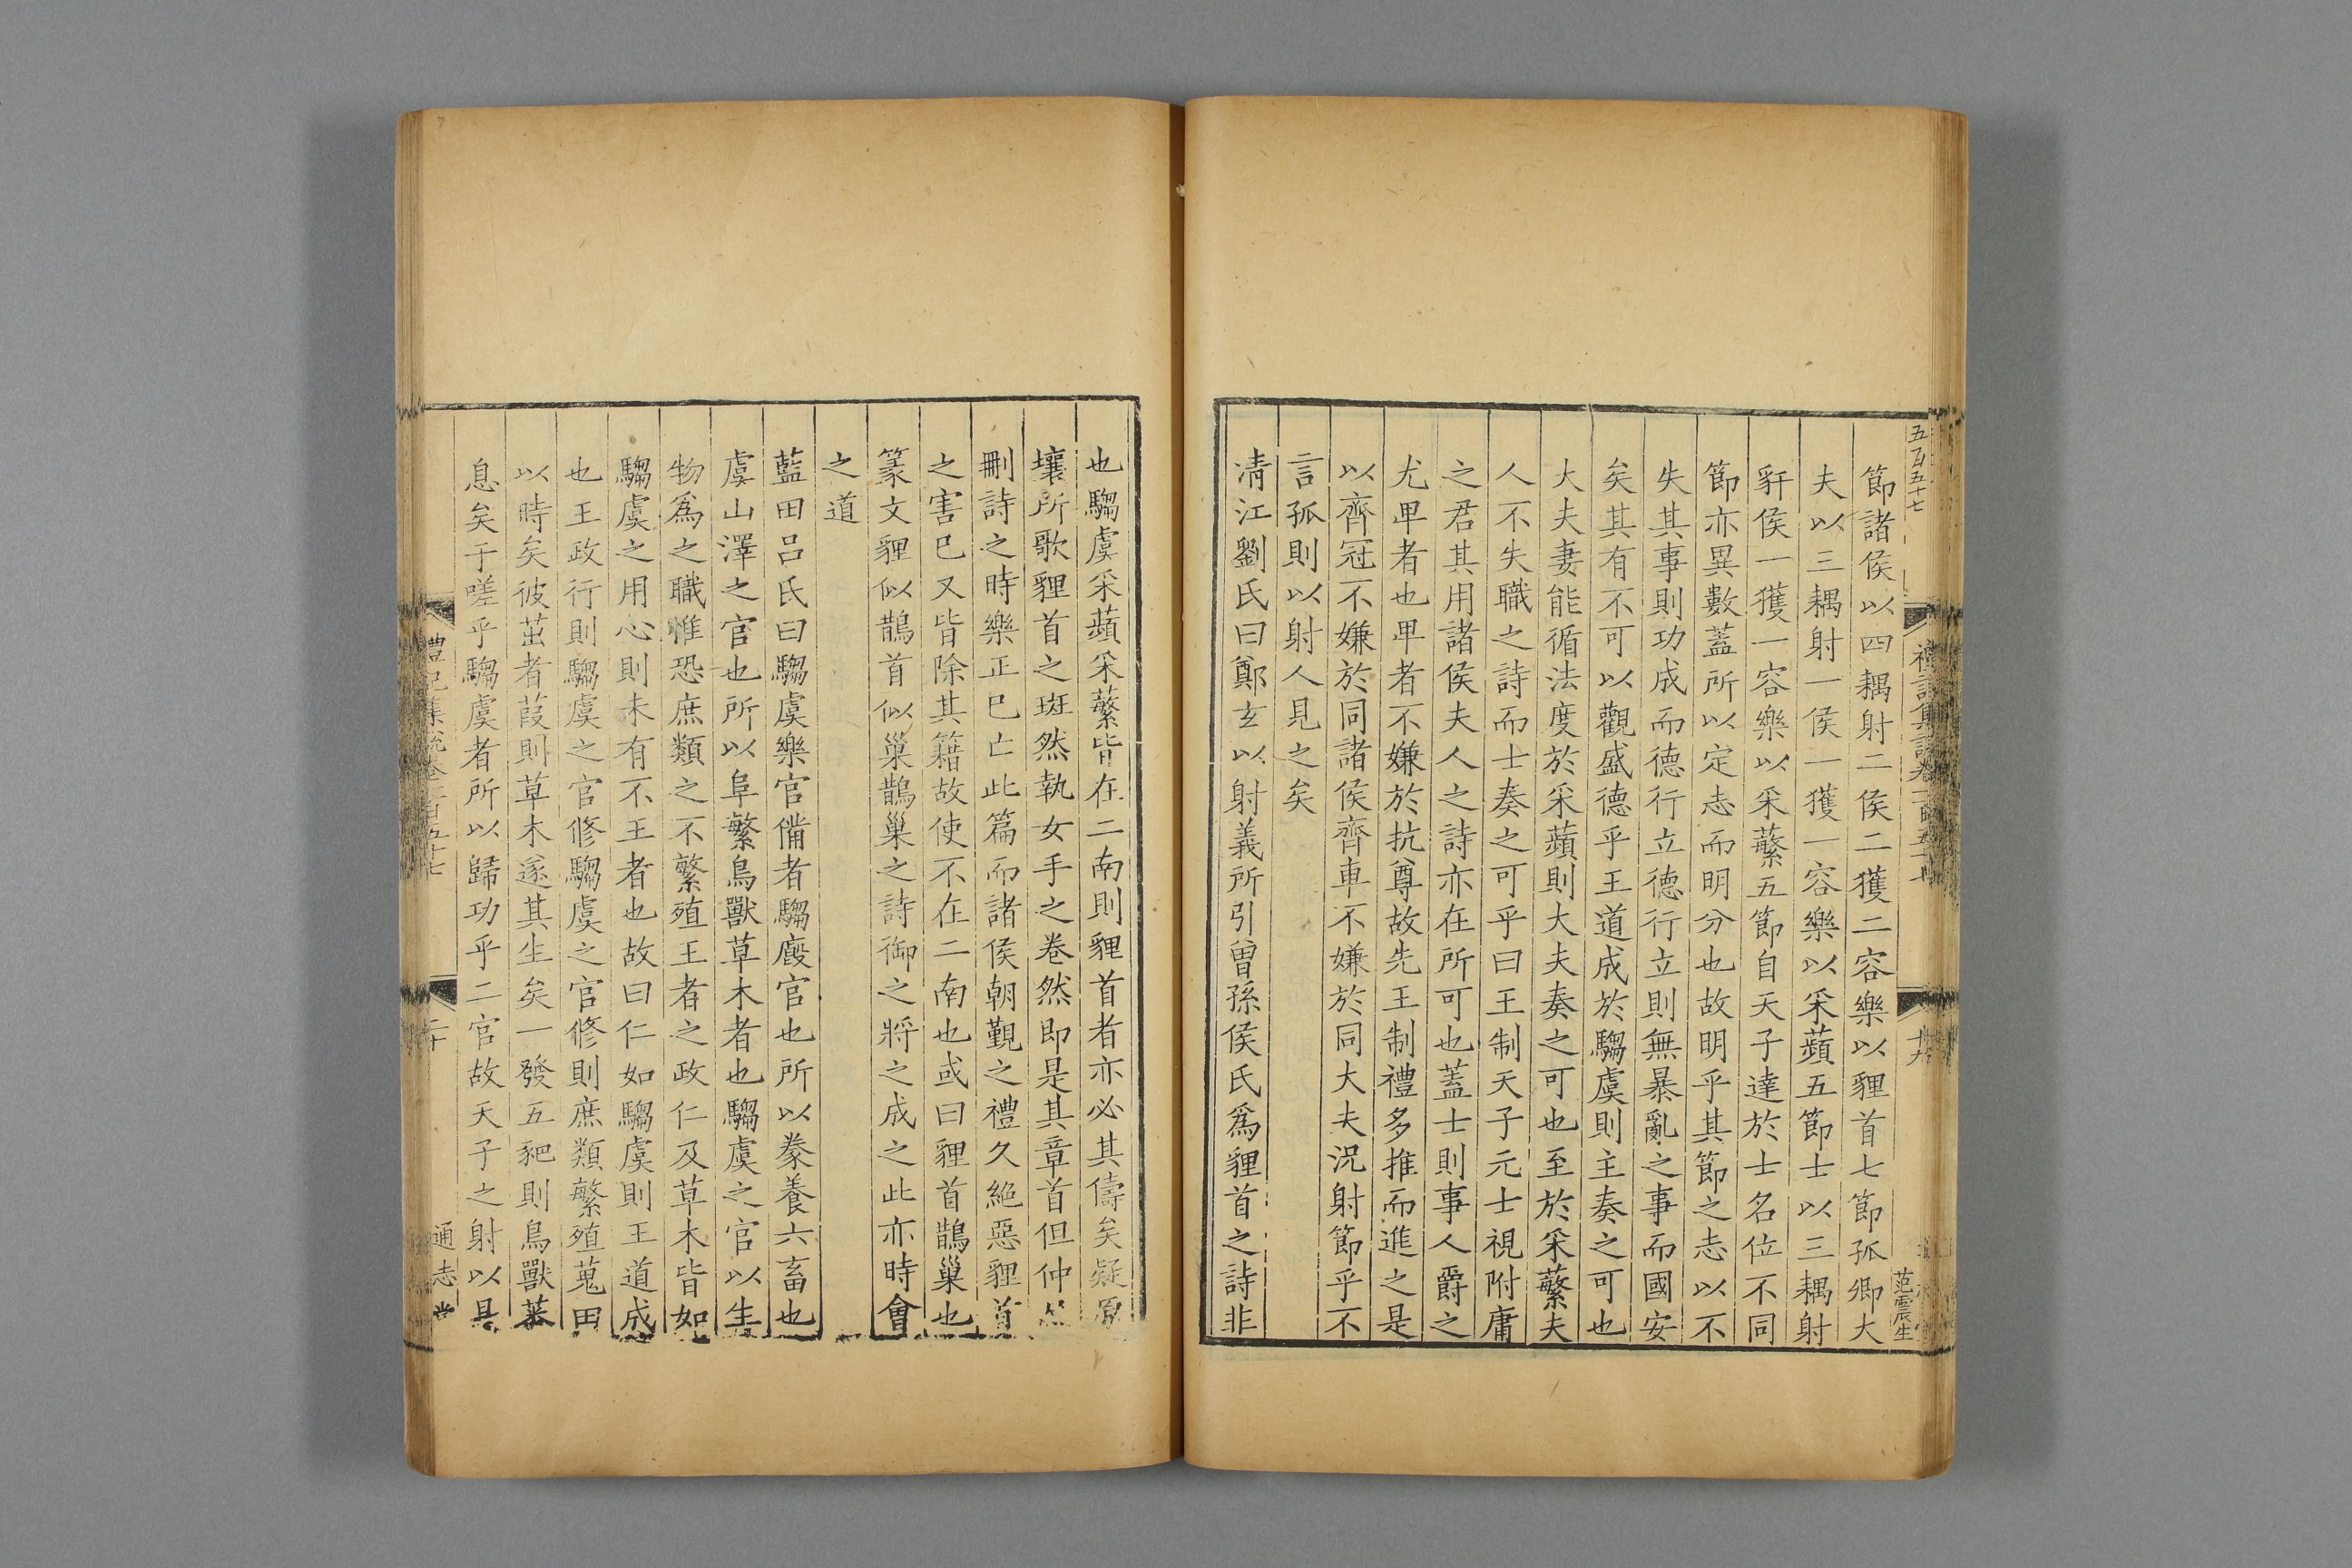 五百五十七
節諸侯以四耦射二侯二獲二容樂以貍首七節孤卿大
夫以三耦射一侯一獲一容樂以采蘋五節士以三耦射
豻侯一獲一容樂以采蘩五節自天子達於士名位不同
節亦異數蓋所以定志而明分也故明乎其節之志以不
失其事則功成而德行立德行立則無暴亂之事而國安
矣其有不可以觀盛德乎王道成於騶虞則主奏之可也
大夫妻能循法度於采蘋則大夫奏之可也至於采蘩夫
人不失職之詩而士奏之可乎曰王制天子元士視附庸
之君其用諸侯夫人之詩亦在所可也蓋士則事人爵之
尤卑者也卑者不嫌於抗尊故先王制禮多推而進之是
以齊冠不嫌於同諸侯齊車不嫌於同大夫況射節乎不
言孤則以射人見之矣
清江劉氏曰鄭玄以射義所引曾孫侯氏爲貍首之詩非
范震生
也騶虞采蘋采蘩皆在二南則貍首者亦必其儔矣疑原
壤所歌貍首之斑然執女手之卷然即是其章首但仲尼
刪詩之時樂正已亡此篇而諸侯朝覲之禮久絕惡貍首
之害已又皆除其籍故使不在二南也或曰貍首鵲巢也
篆文貍似鵲首似巢鵲巢之詩御之將之成之此亦時會
之道
藍田呂氏曰騶虞樂官備者騶廄官也所以豢養六畜也
虞山澤之官也所以阜繁鳥獸草木者也騶虞之官以生
物爲之職惟恐庶類之不繁殖王者之政仁及草木皆如
騶虞之用心則未有不王者也故曰仁如騶虞則王道成
也王政行則騶虞之官修騶虞之官修則庶類繁殖蒐田
以時矣彼茁者葭則草木遂其生矣一發五豝則鳥獸蕃
息矣于嗟乎騶虞者所以歸功乎二官故天子之射以是
禮記集說卷一百五十七
二十
通志堂